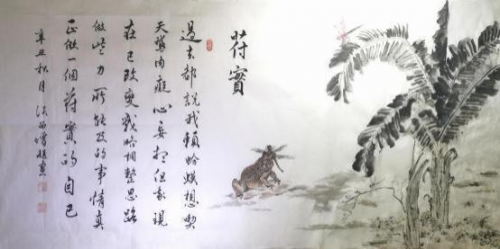 苻實
過去都說我賴蛤蟆想喫
天鵞肉癡心妄想但我現
在已改變戰略調整思路
做些力所能及的事情真
正做一個苻實的自己
辛丑秋月